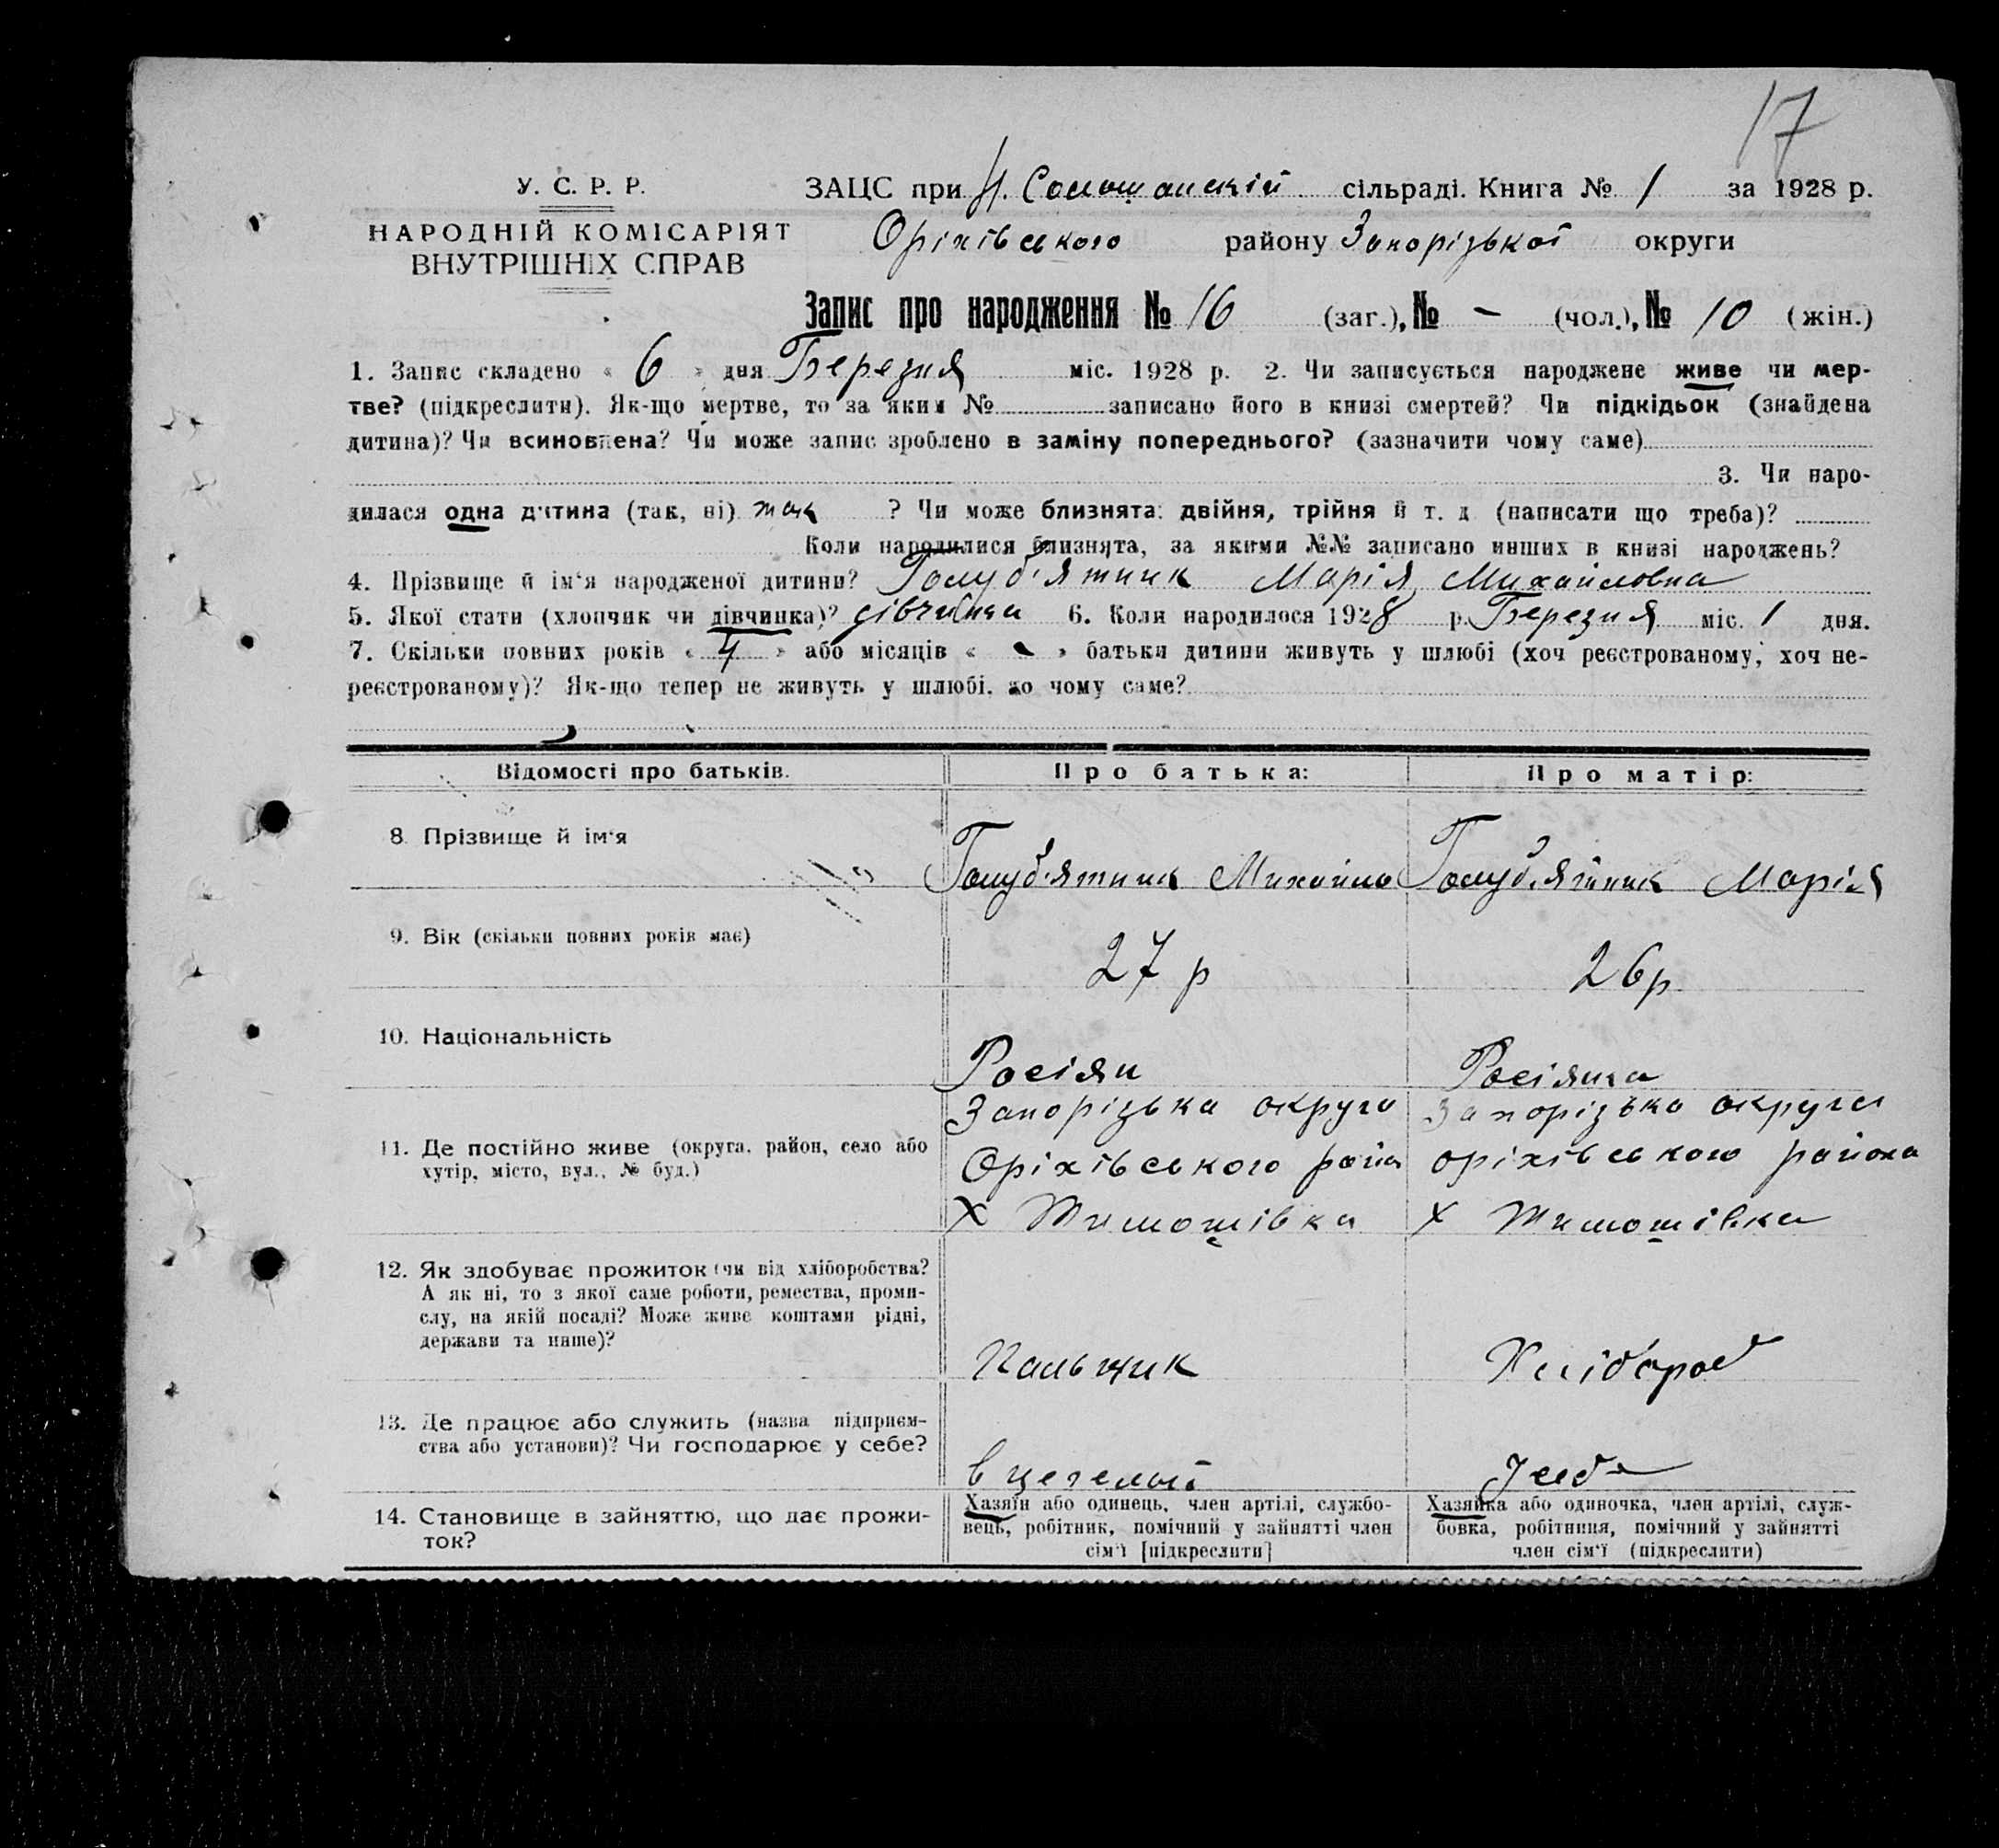 17
У. С. Р. Р.
НАРОДНІЙ КОМІСАРІЯТ
ВНУТРІШНІХ СПРАВ
ЗАЦС при сільраді. Книга № 1 за 1928 р.
Оріхівського району Запорізької округи
Запис про народження № 16 (заг.), № - (чол.), № 10 (жін.)
1. Запис складено « 6 » дня Березня міс. 1928 р. 2. Чи записується народжене живе чи мер-
тве? (підкреслити). Як-що мертве, то за яким № записано його в книзі смертей? Чи підкідьок (знайдена
дитина)? Чи всиновлена? Чи може запис зроблено в заміну попереднього? (зазначити чому саме)
3. Чи наро-
дилася одна дитина (так, ні) так ? Чи може близнята: двійня, трійня й т. д. (написати що треба)?
Коли народилися близнята, за якими №№ записано инших в книзі народжень?
4. Прізвище й ім‘я народженої дитини? Голуб'ятник Марія Михайловна
5. Якої стати (хлопчик чи дівчинка)? дівчинка 6. Коли народилося 1928 р. Березня міс. 1 дня.
7. Скільки повних років « 4 » або місяців « - » батьки дитини живуть у шлюбі (хоч реєстрованому, хоч не-
реєстрованому)? Як-що тепер не живуть у шлюбі, то чому саме?
Відомості про батьків. Про батька: Про матір:
8. Прізвище й ім‘я Голуб'ятник Михайло Голуб'ятник Марія
9. Вік (скільки повних років має) 27 р 26 р
10. Національність Росіян Росіянка
11. Де постійно живе (округа, район, село або
хутір, місто, вул., № буд.)
Запорізька округа
Оріхівського район
х Тимошівка
Запорізька округа
оріхівського района
х Тимошівка
12. Як здобуває прожиток (чи від хліборобства?
А як ні, то з якої саме роботи, ремества, проми-
слу, на якій посаді? Може живе коштами рідні,
держави та инше)?
Пальщик Хлібороб
13. Де працює або служить (назва підприєм-
ства або установи)? Чи господарює у себе?
в цегельні У себе
14. Становище в зайняттю, що дає прожи-
ток?
Хазяїн або одинець, член артілі, службо-
вець, робітник, помічний у зайнятті член
сім‘ї [підкреслити]
Хазяйка або одиночка, член артілі, служ-
бовка, робітниця, помічний у зайнятті
член сім‘ї (підкреслити)